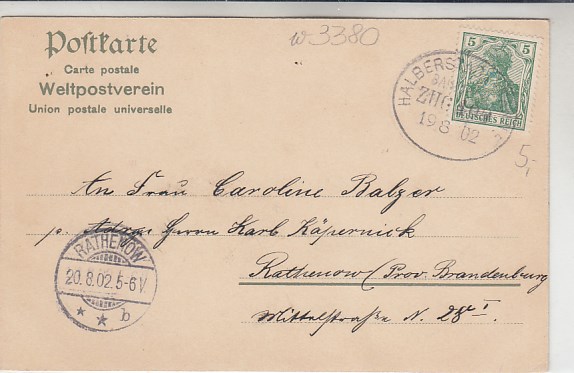 Postkarte
Carte postale
Weltpostverein
Union postale universelle
w-3380
5 5
DEUTSCHES REICH
HALBERST
BAH
ZUG
19 8 02
5,-
An Frau Caroline Balzer
p. Adrae Herrn Karl Käpernick
Rathenow (Prov. Brandenburg
Mittelstraße N. 28 I
RATHENOW
20.8.02.5-6V
* * b